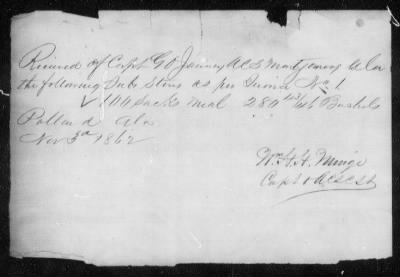 Received of Capt G D Janney ACS Montgomery Ala
the following Sub Stores as per Invoice No 1
√ 100 Sacks Meal 280 Bushels
Pollard Ala
Nov 3d 1862
Wm H. H. Minge
Capt & ACSCSA